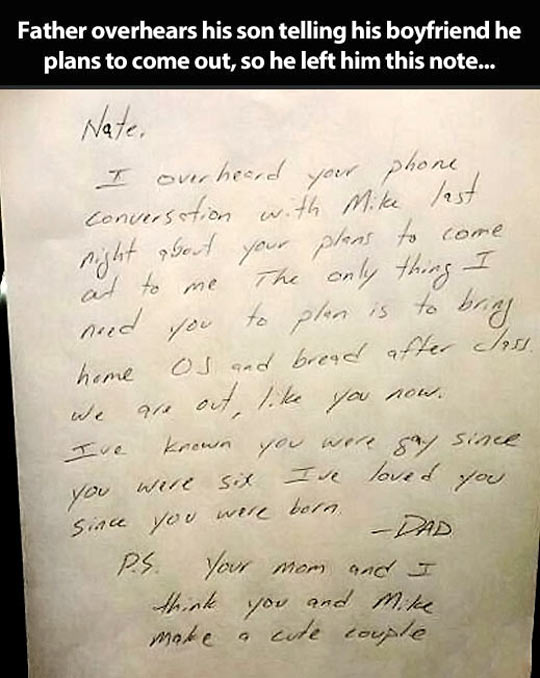 Father overhears his son telling his boyfriend he
plans to come out, so he left him this note...
Nate,
I overheard your phone
conversation with Mike last
night about your plans to come
out to me The only thing I
need you to plan is to bring
home OJ and bread after class.
We are out, like you now.
I've known you were gay since
you were six I've loved you
since you were born.
-DAD
P.S. Your mom and I
think you and Mike
make a cute couple